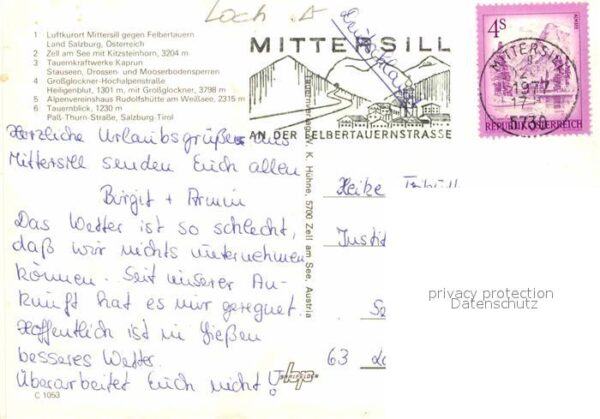 Loch
1 Luftkurort Mittersill gegen Felbertauern
Land Salzburg, Österreich
2 Zell am See mit Kitzsteinhorn, 3204 m
3 Tauernkraftwerke Kaprun
Stauseen, Drossen- und Mooserbodensperren
4 Großglockner-Hochalpenstraße
Heiligenblut, 1301 m, mit Großglockner, 3798 m
5 Alpenvereinshaus Rudolfshütte am Weißsee, 2315 m
6 Tauernblick, 1230 m
Paß-Thurn-Straße, Salzburg-Tirol
MITTERSILL
AN DER FELBERTAUERNSTRASSE
4S
REPUBLIK ÖSTERREICH
MITTERSILL
1977
5730
Herzliche Urlaubsgrüße aus
Mittersill senden Euch allen
Birgit + Armin
Das Wetter ist so schlecht,
daß wir nichts unternehmen
können. Seit unserer An-
kunft hat es nur geregnet.
Hoffentlich ist in Gießen
besseres Wetter.
Überarbeitet Euch nicht!
C 1053
W. K. Hühne, 5700 Zell am See, Austria
Heike
Instit
63
privacy protection
Datenschutz